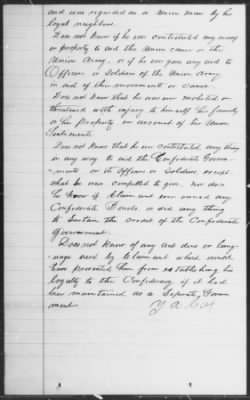 and was regarded as a Union man by his
loyal neighbors.
Does not know if he ever contributed any money
or property to aid the Union cause or the
Union Army. or if he ever gave any aid to
Officers or Soldiers of the Union Army
in aid of their movement or cause.
Does not know that he ever was molested or
threatened with injury to himself his family
or his Property on account of his Union
Sentiments.
Does not know that he ever contributed any thing
in any way to aid the Confederate Govern
ments or its Officers or Soldiers except
what he was compelled to give, nor does
he know if Claimant ever owned any
Confederate Bonds or did any thing
to Sustain the credit of the Confederate
Government.
Does not know of any act done or lang-
uage used by Claimant which would
have prevented him from establishing his
loyalty to the Confederacy if it had
been maintained as a Seperate Govern
ment